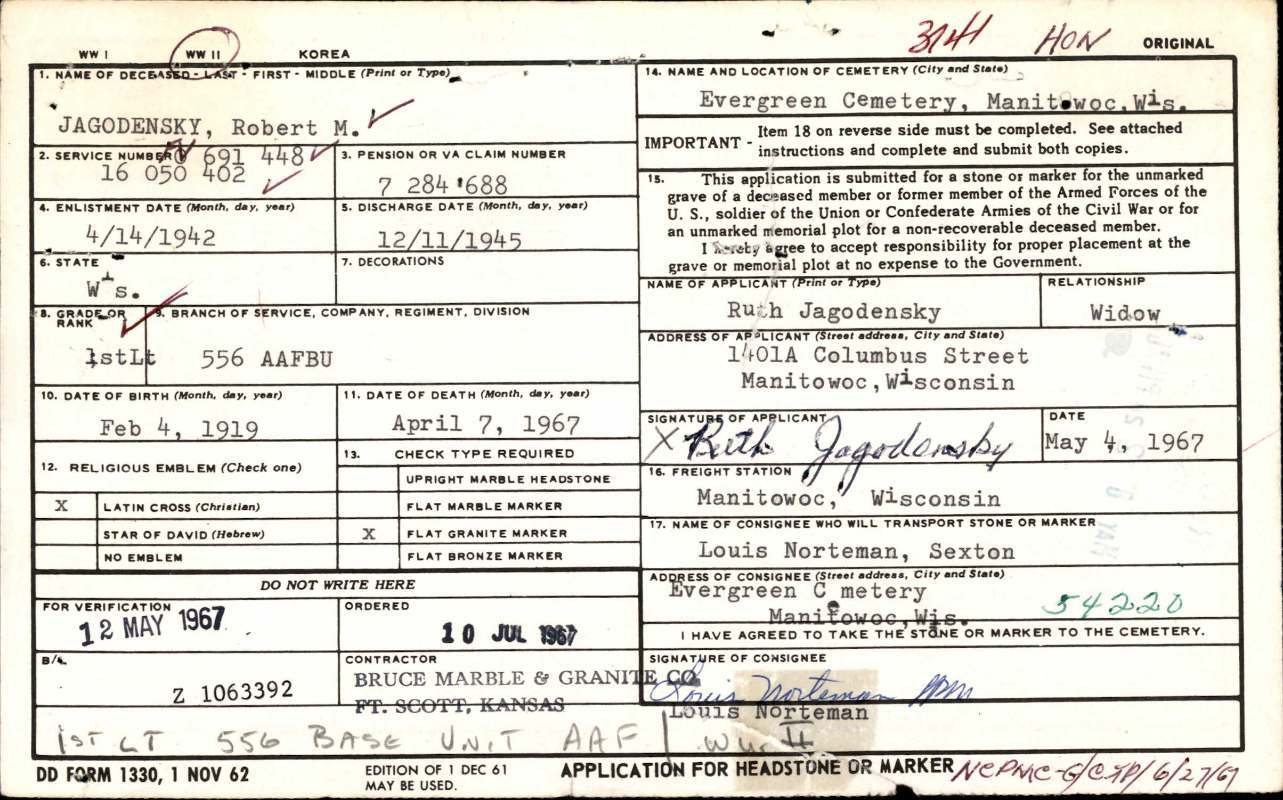 WW I WW II KOREA
3141 HON ORIGINAL
1. NAME OF DECEASED - LAST - FIRST - MIDDLE (Print or Type)
JAGODENSKY, Robert M.
2. SERVICE NUMBER
0 691 448
16 050 402
3. PENSION OR VA CLAIM NUMBER
7 284 688
4. ENLISTMENT DATE (Month, day, year)
4/14/1942
5. DISCHARGE DATE (Month, day, year)
12/11/1945
6. STATE
Wis.
7. DECORATIONS
8. GRADE OR RANK
1stLt
9. BRANCH OF SERVICE, COMPANY, REGIMENT, DIVISION
556 AAFBU
10. DATE OF BIRTH (Month, day, year)
Feb 4, 1919
11. DATE OF DEATH (Month, day, year)
April 7, 1967
12. RELIGIOUS EMBLEM (Check one)
X LATIN CROSS (Christian)
STAR OF DAVID (Hebrew)
NO EMBLEM
13. CHECK TYPE REQUIRED
UPRIGHT MARBLE HEADSTONE
FLAT MARBLE MARKER
X FLAT GRANITE MARKER
FLAT BRONZE MARKER
DO NOT WRITE HERE
FOR VERIFICATION
12 MAY 1967
ORDERED
10 JUL 1967
B/L
Z 1063392
CONTRACTOR
BRUCE MARBLE & GRANITE CO
FT. SCOTT, KANSAS
14. NAME AND LOCATION OF CEMETERY (City and State)
Evergreen Cemetery, Manitowoc, Wis.
IMPORTANT - Item 18 on reverse side must be completed. See attached
instructions and complete and submit both copies.
15. This application is submitted for a stone or marker for the unmarked
grave of a deceased member or former member of the Armed Forces of the
U. S., soldier of the Union or Confederate Armies of the Civil War or for
an unmarked memorial plot for a non-recoverable deceased member.
I hereby agree to accept responsibility for proper placement at the
grave or memorial plot at no expense to the Government.
NAME OF APPLICANT (Print or Type)
Ruth Jagodensky
RELATIONSHIP
Widow
ADDRESS OF APPLICANT (Street address, City and State)
1401A Columbus Street
Manitowoc, Wisconsin
SIGNATURE OF APPLICANT
X Ruth Jagodensky
DATE
May 4, 1967
16. FREIGHT STATION
Manitowoc, Wisconsin
17. NAME OF CONSIGNEE WHO WILL TRANSPORT STONE OR MARKER
Louis Norteman, Sexton
ADDRESS OF CONSIGNEE (Street address, City and State)
Evergreen Cemetery
Manitowoc, Wis. 54220
I HAVE AGREED TO TAKE THE STONE OR MARKER TO THE CEMETERY.
SIGNATURE OF CONSIGNEE
Louis Norteman
Louis Norteman
1ST LT 556 BASE UNIT AAF | WW II
DD FORM 1330, 1 NOV 62
EDITION OF 1 DEC 61
MAY BE USED.
APPLICATION FOR HEADSTONE OR MARKER